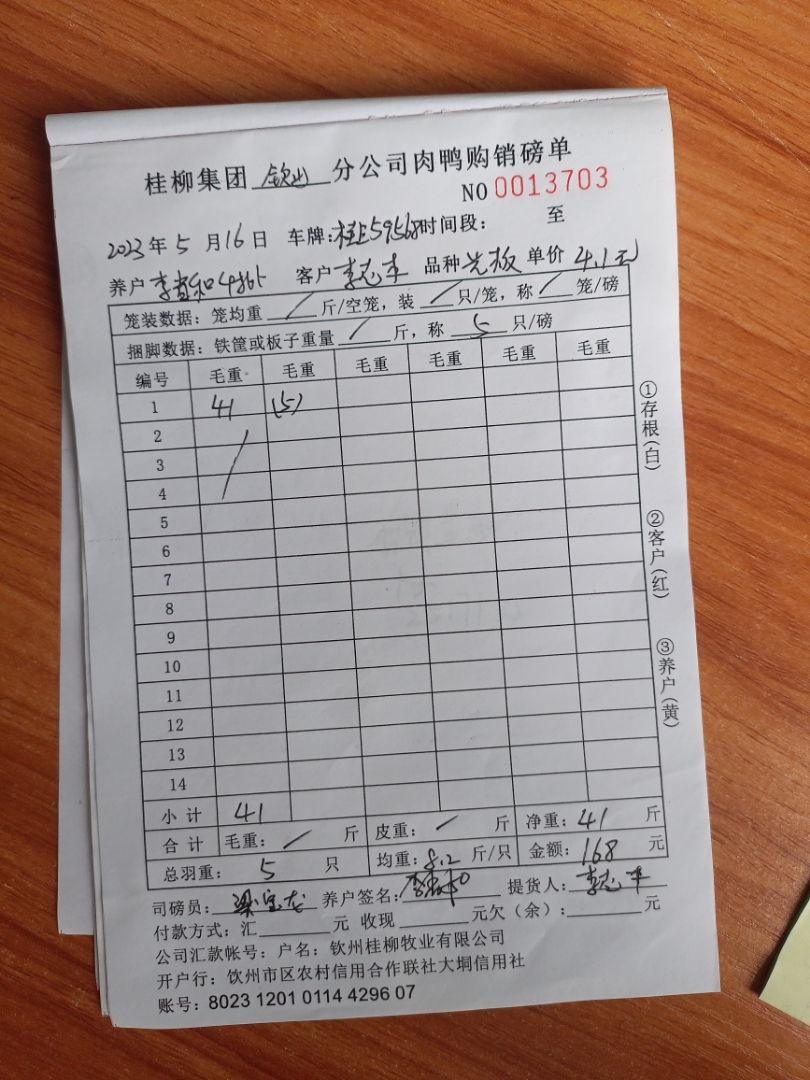 桂柳集团 钦州 分公司肉鸭购销磅单
NO 0013703
2023年5月16日 车牌:桂E59568时间段: 至
养户 李 和 客户 李志 品种 光板 单价 4.1元
笼装数据:笼均重 / 斤/空笼,装 / 只/笼,称 / 笼/磅
捆脚数据:铁筐或板子重量 / 斤,称 5 只/磅
编号 毛重 毛重 毛重 毛重 毛重 毛重
1 41 (5)
2
3
4
5
6
7
8
9
10
11
12
13
14
小计 41
合计 毛重: / 斤 皮重: / 斤 净重: 41 斤
总羽重: 5 只 均重: 8.2 斤/只 金额: 168 元
司磅员: 梁宝龙 养户签名: 李 和 提货人: 李志
付款方式:汇 元 收现 元欠(余): 元
公司汇款帐号:户名:钦州桂柳牧业有限公司
开户行:钦州市区农村信用合作联社大垌信用社
账号:8023 1201 0114 4296 07
①存根(白)
②客户(红)
③养户(黄)